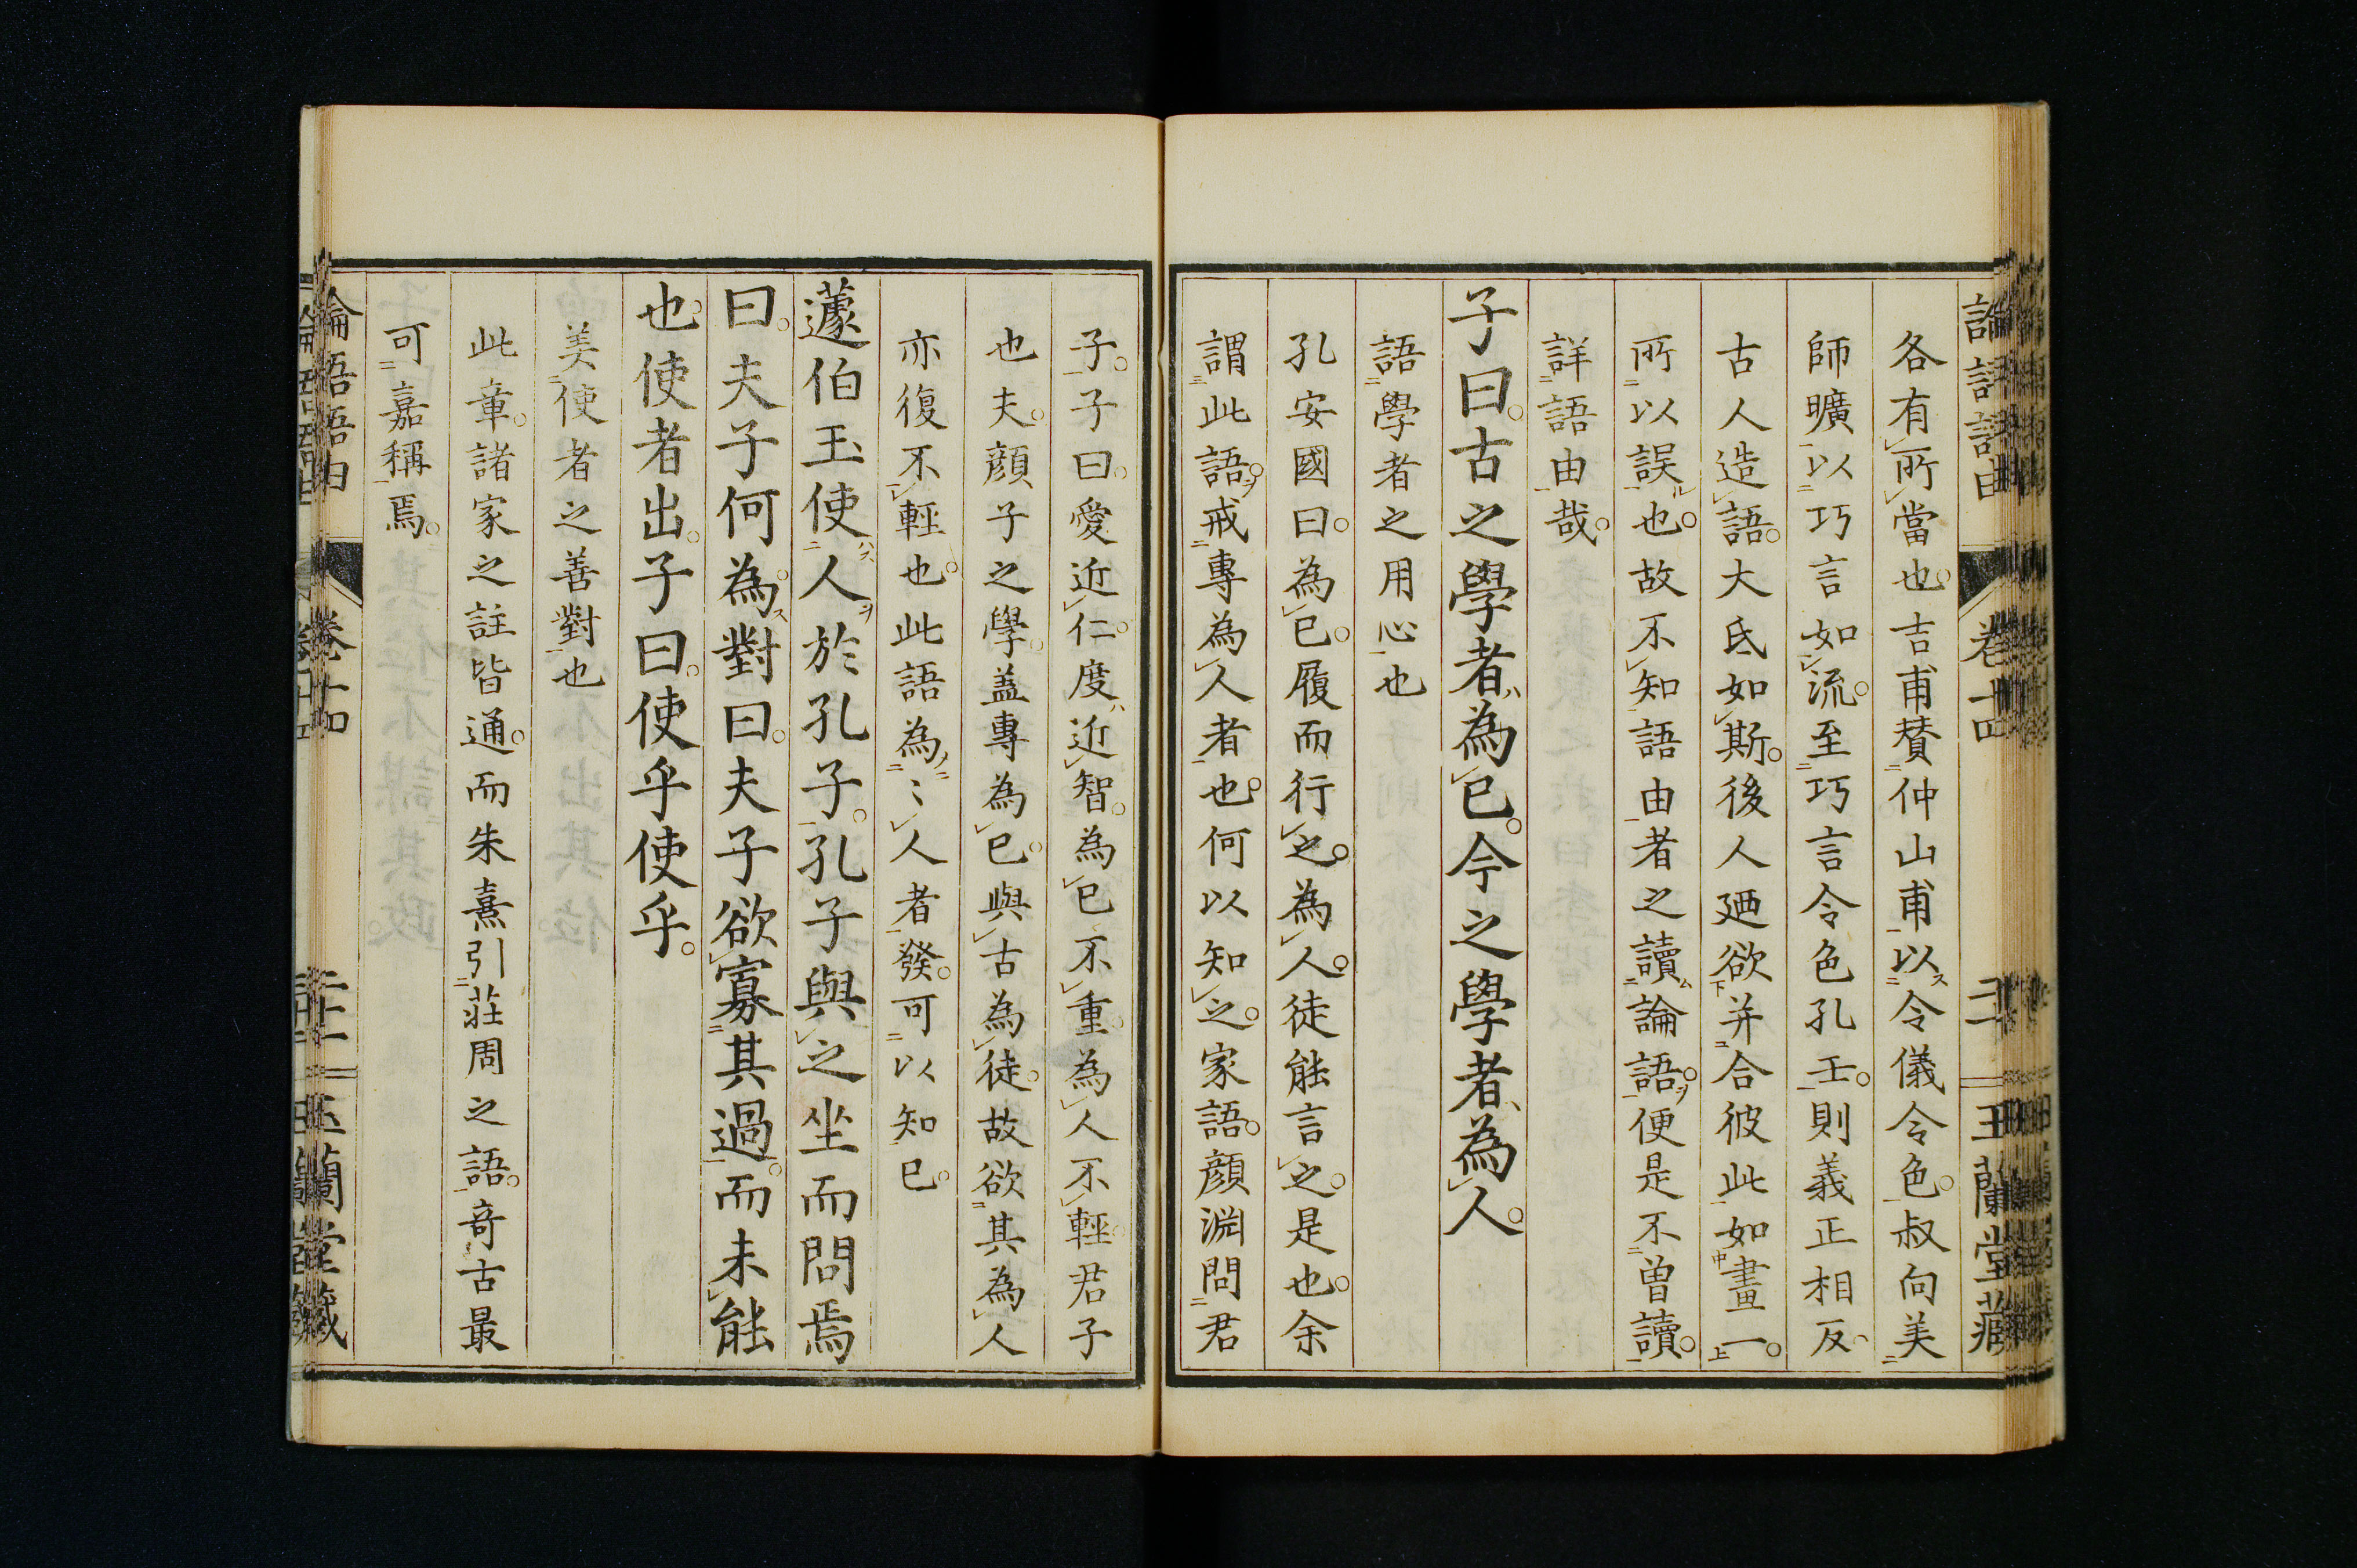 論語語由 卷十四 玉蘭堂藏
各有所當也。吉甫賛仲山甫以令儀令色。叔向美
師曠以巧言如流。至巧言令色孔壬。則義正相反、
古人造語。大氐如斯。後人廼欲并合彼此如畫一。
所以誤也。故不知語由者之讀論語。便是不曽讀。
詳語由哉。
子曰。古之學者、為已。今之學者、為人。
語學者之用心也
孔安國曰。為已。履而行之。為人。徒能言之。是也。余
謂此語。戒專為人者也。何以知之。家語。顔淵問君
子。子曰。愛近仁。度近智。為已不重。為人不輕。君子
也夫。顔子之學。盖專為已。與古為徒。故欲其為人
亦復不輕也。此語為〻人者發。可以知已。
蘧伯玉使人於孔子。孔子與之坐而問焉
曰。夫子何為。對曰。夫子欲寡其過。而未能
也。使者出。子曰。使乎使乎。
美使者之善對也
此章。諸家之註皆通。而朱熹引莊周之語。奇古最
可嘉稱焉。
論語語由 卷十四 玉蘭堂藏